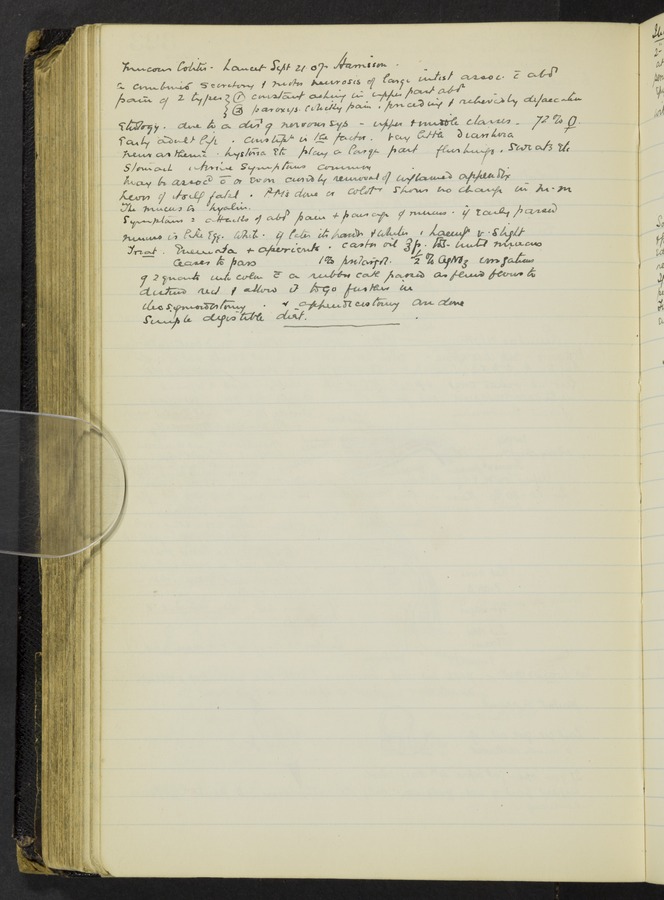 Mucous Colitis - Lancet Sept 21 07 - Harrison.
a combined secretory & motor neurosis of large intest assoc. c̄ abd
pain of 2 types } ① constant aching in upper part abd
} ② paroxys. colicky pain. preceding & relieved by defaecation
Etiology. due to a dis of nervous sys - upper & middle classes - 72% ♀
Early adult life. Constipt is the factor. very little Diarrhoea
Neurasthenia. hysteria Etc play a large part flushings. Sweats Etc
Stomach uterine symptoms common
May be assoc c̄ or even cured by removal of inflamed appendix
Never of itself fatal. P.M's done on colon shows no change in m.m
The mucus is hyalin.
Symptoms = attacks of abd pain & passage of mucus. if early passed
mucus is like Egg. White. if later its harder & whiter, & haem v. slight
Treat. Enemata & aperients. castor oil ʒp. until mucous
ceases to pass 1% protargol. ½ % AgNO3 irrigations
of 2 quarts into colon c̄ a rubber cath passed as fluid flows to
distend rect & allow it to go further in
ileosigmoidostomy. & appendicostomy are done
Simple digestible diet.